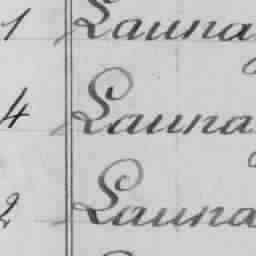 1 Launay
4 Launay
2 Launa